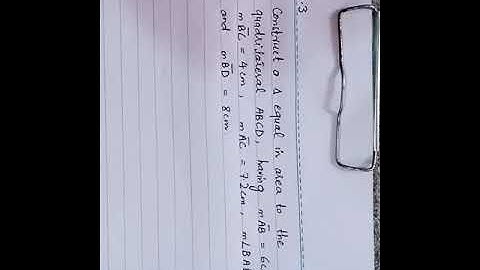 :3
Construct a Δ equal in area to the
quadrilateral ABCD, having mAB = 6c
mBC = 4cm, mAC = 7.2cm, m∠BA
and mBD = 8cm